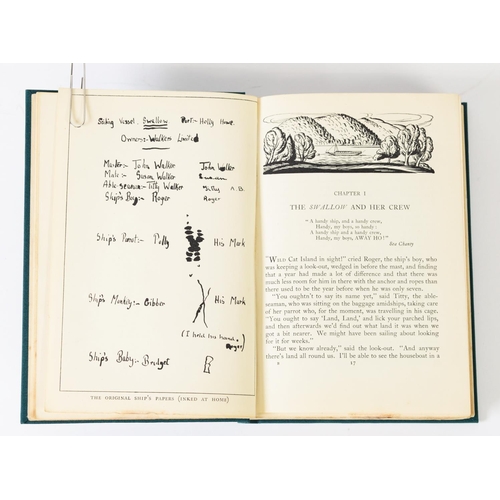 Sailing Vessel. Swallow Port:- Holly Howe.
Owners:- Walkers Limited
Master:- John Walker John Walker
Mate:- Susan Walker Susan
Able-seaman:- Titty Walker Titty A.B.
Ship's Boy:- Roger Roger
Ship's Parrot:- Polly His Mark
Ship's Monkey:- Gibber His Mark
(I held his hand.
Roger)
Ship's Baby:- Bridget B
THE ORIGINAL SHIP'S PAPERS (INKED AT HOME)
CHAPTER I
THE SWALLOW AND HER CREW
"A handy ship, and a handy crew,
Handy, my boys, so handy:
A handy ship and a handy crew,
Handy, my boys, AWAY HO!"
Sea Chanty
"WILD CAT ISLAND in sight!" cried Roger, the ship's boy, who
was keeping a look-out, wedged in before the mast, and finding
that a year had made a great difference, and that there was
much less room for him in there with the anchor and ropes than
there used to be the year before when he was only seven.
"You oughtn't to say its name yet," said Titty, the able-
seaman, who was sitting on the baggage amidships, taking
care of her parrot who, for the moment, was travelling in his cage.
"You ought to say 'Land, Land,' and lick your parched lips,
and then afterwards we'd find out what land it was when we
got a bit nearer. We might have been sailing about looking
for it for weeks."
"But we know already," said the look-out. "And anyway
there's land all round us. I'll be able to see the houseboat in a
17